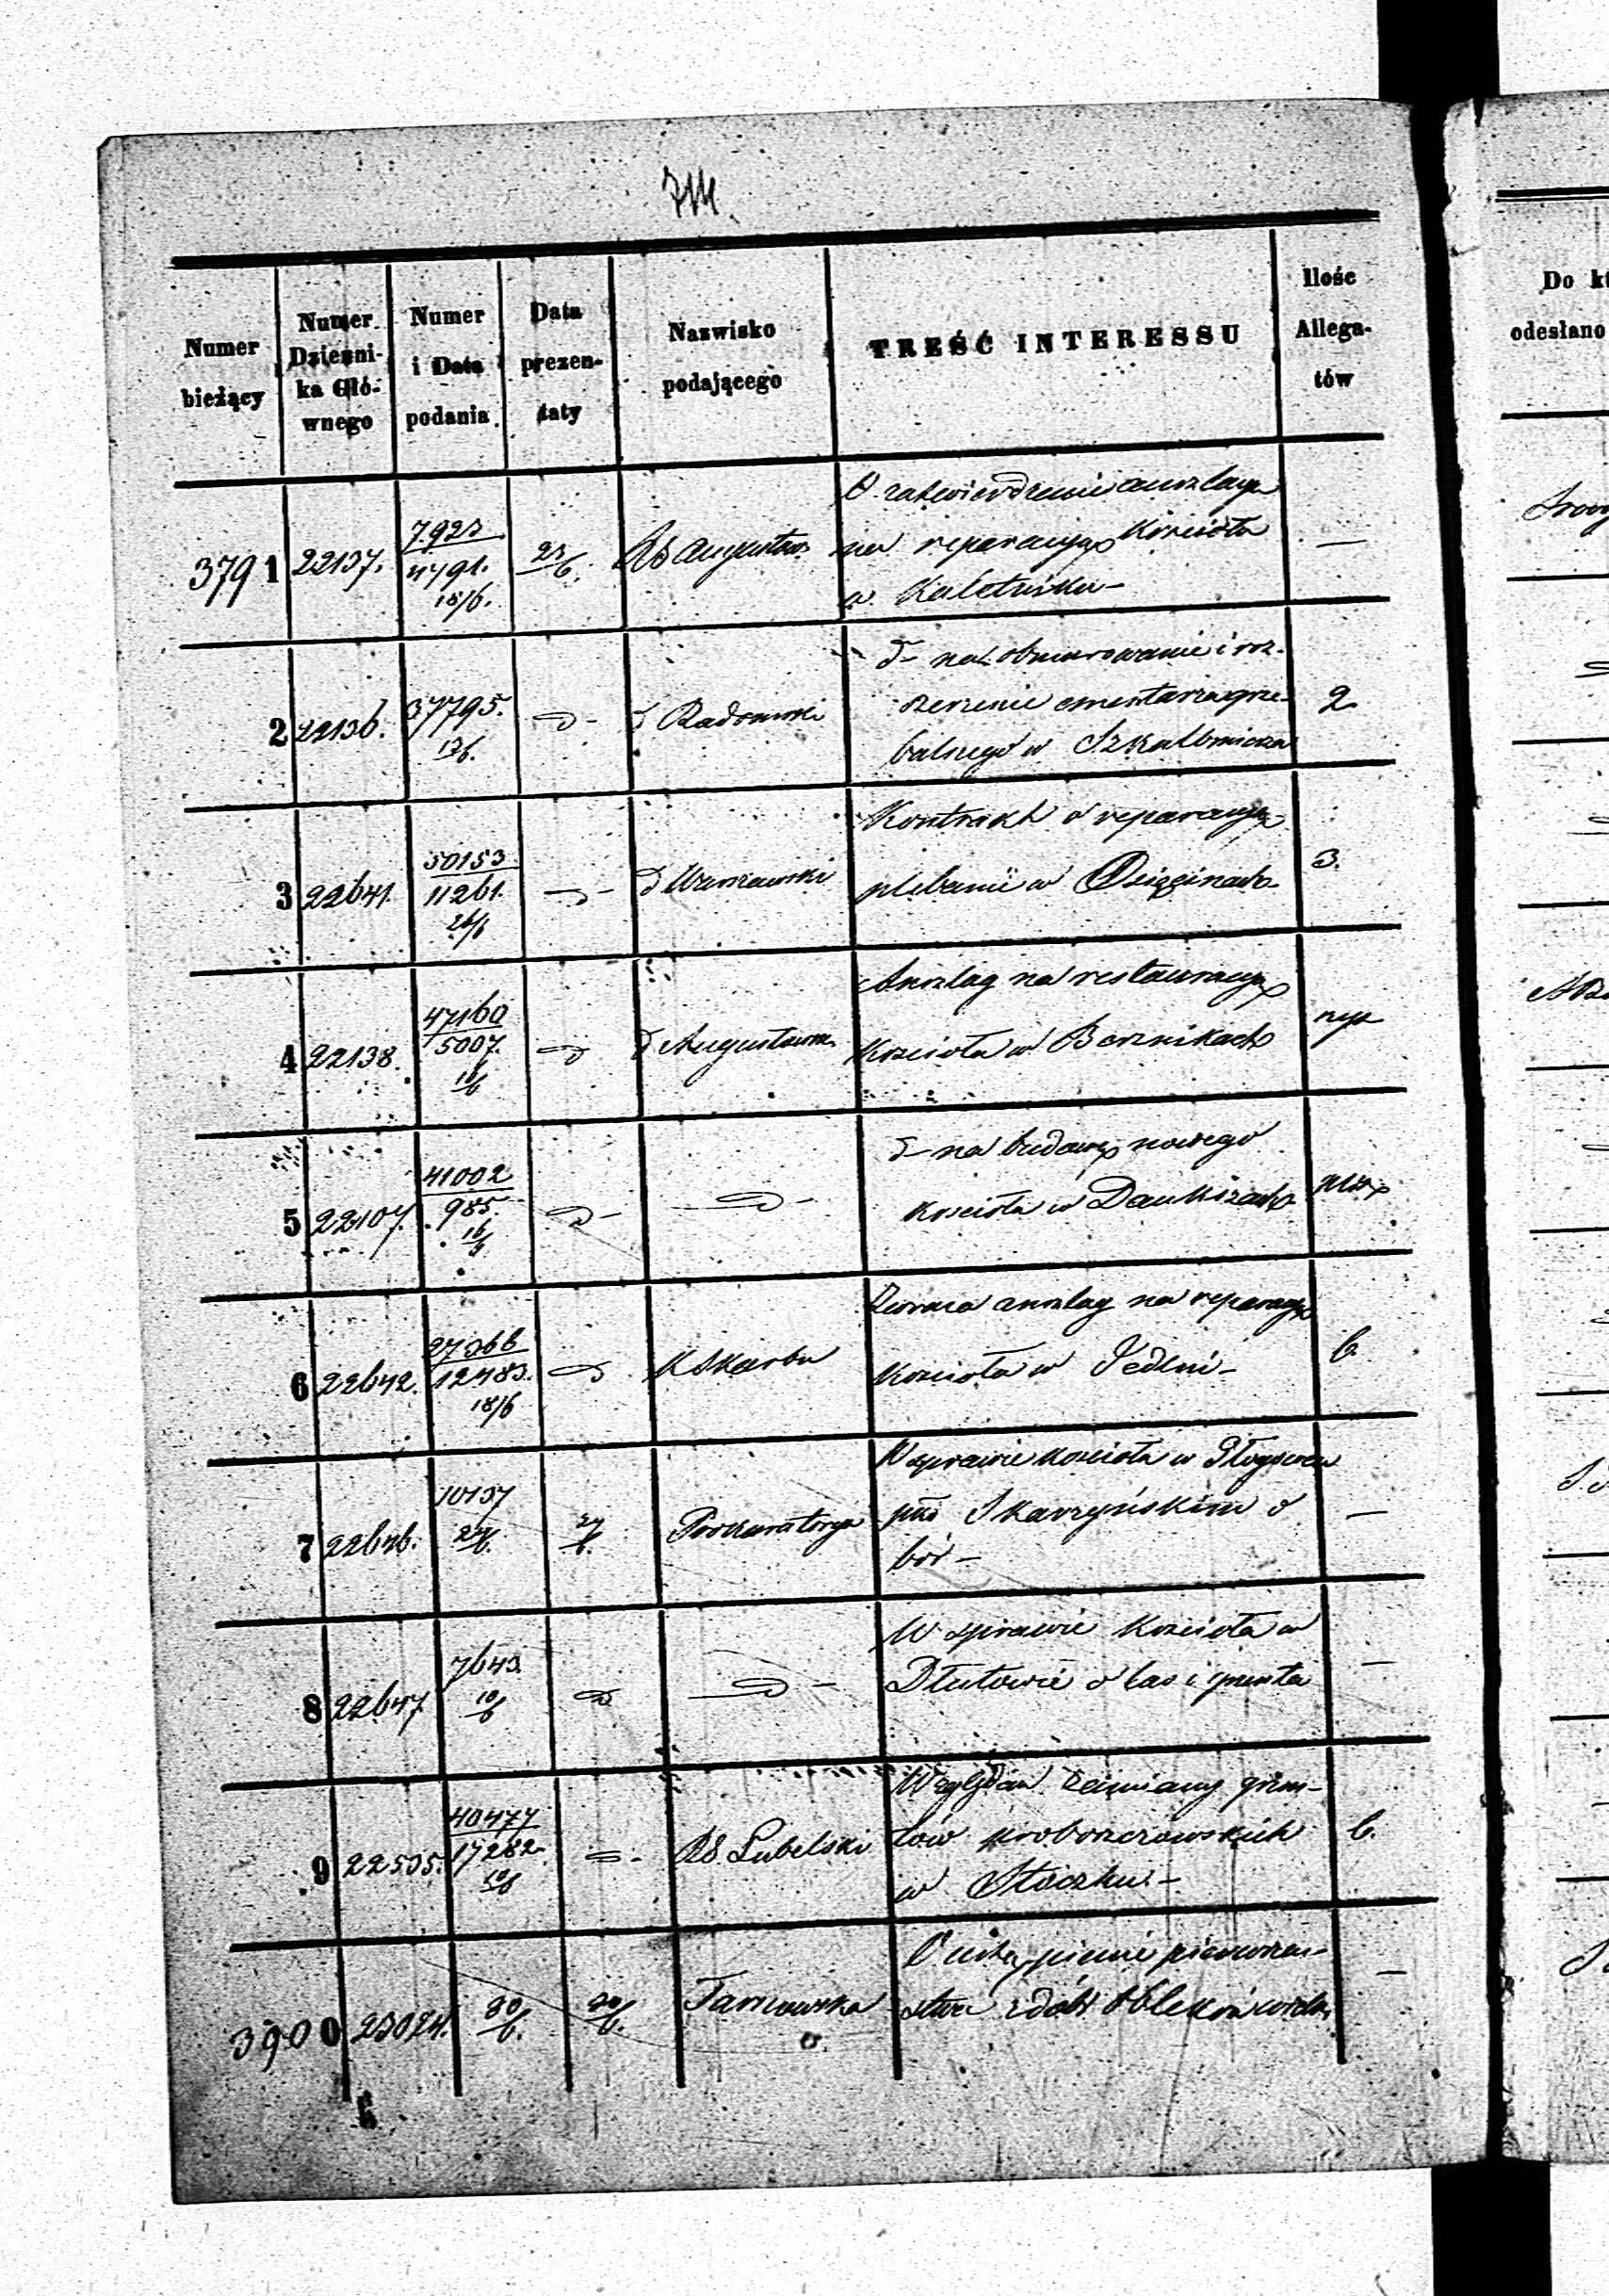 Numer bieżący
Numer Dzienni-ka Głó-wnego
Numer i Data podania
Data prezen-taty
Nazwisko podającego
TREŚĆ INTERESSU
Ilość Allega-tów
Do
odesłano
3791 22137. 7923 4791. 18/6. 23/6. RG August. O zatwierdzenie anszlagu
na reparacyą Kościoła —
w Kaletniku —
2 22136. 37795. d Radomski na obmurowanie i roz-
szerzenie cmentarza grze- 2
balnego w Szkalbmierzu
3 22641. 50153 11261. 26/6 d Warszawski Kontrakt o reparacyą
plebanii w Osięcinach 3.
4 22138. 47160 5007. d Augustow. Anszlag na restauracyą
Kościoła w Berznikach
5 22107. 41002 985. na budowę nowego
kościoła w Daukszach
6 22642. 27366 12483. 18/6 K Skarbu Zwraca anszlag na reparacyą
Kościoła w Jedlni — 6.
7 22646. 10137 27/6. Prokuratorya W sprawie kościoła w
Skarżyńskim o —
bór —
8 22647 7643 10/6 W sprawie Kościoła w
Dłutowie o las i grunta —
9 22505. 40477 17282. RG. Lubelski Względem zamiany grun-
tów proboszczowskich 6.
w Stoczku. —
3900 23024. 30/6. 30/6. Tarnowska O ustąpienie pierwszeń-
stwa z dóbr —
6